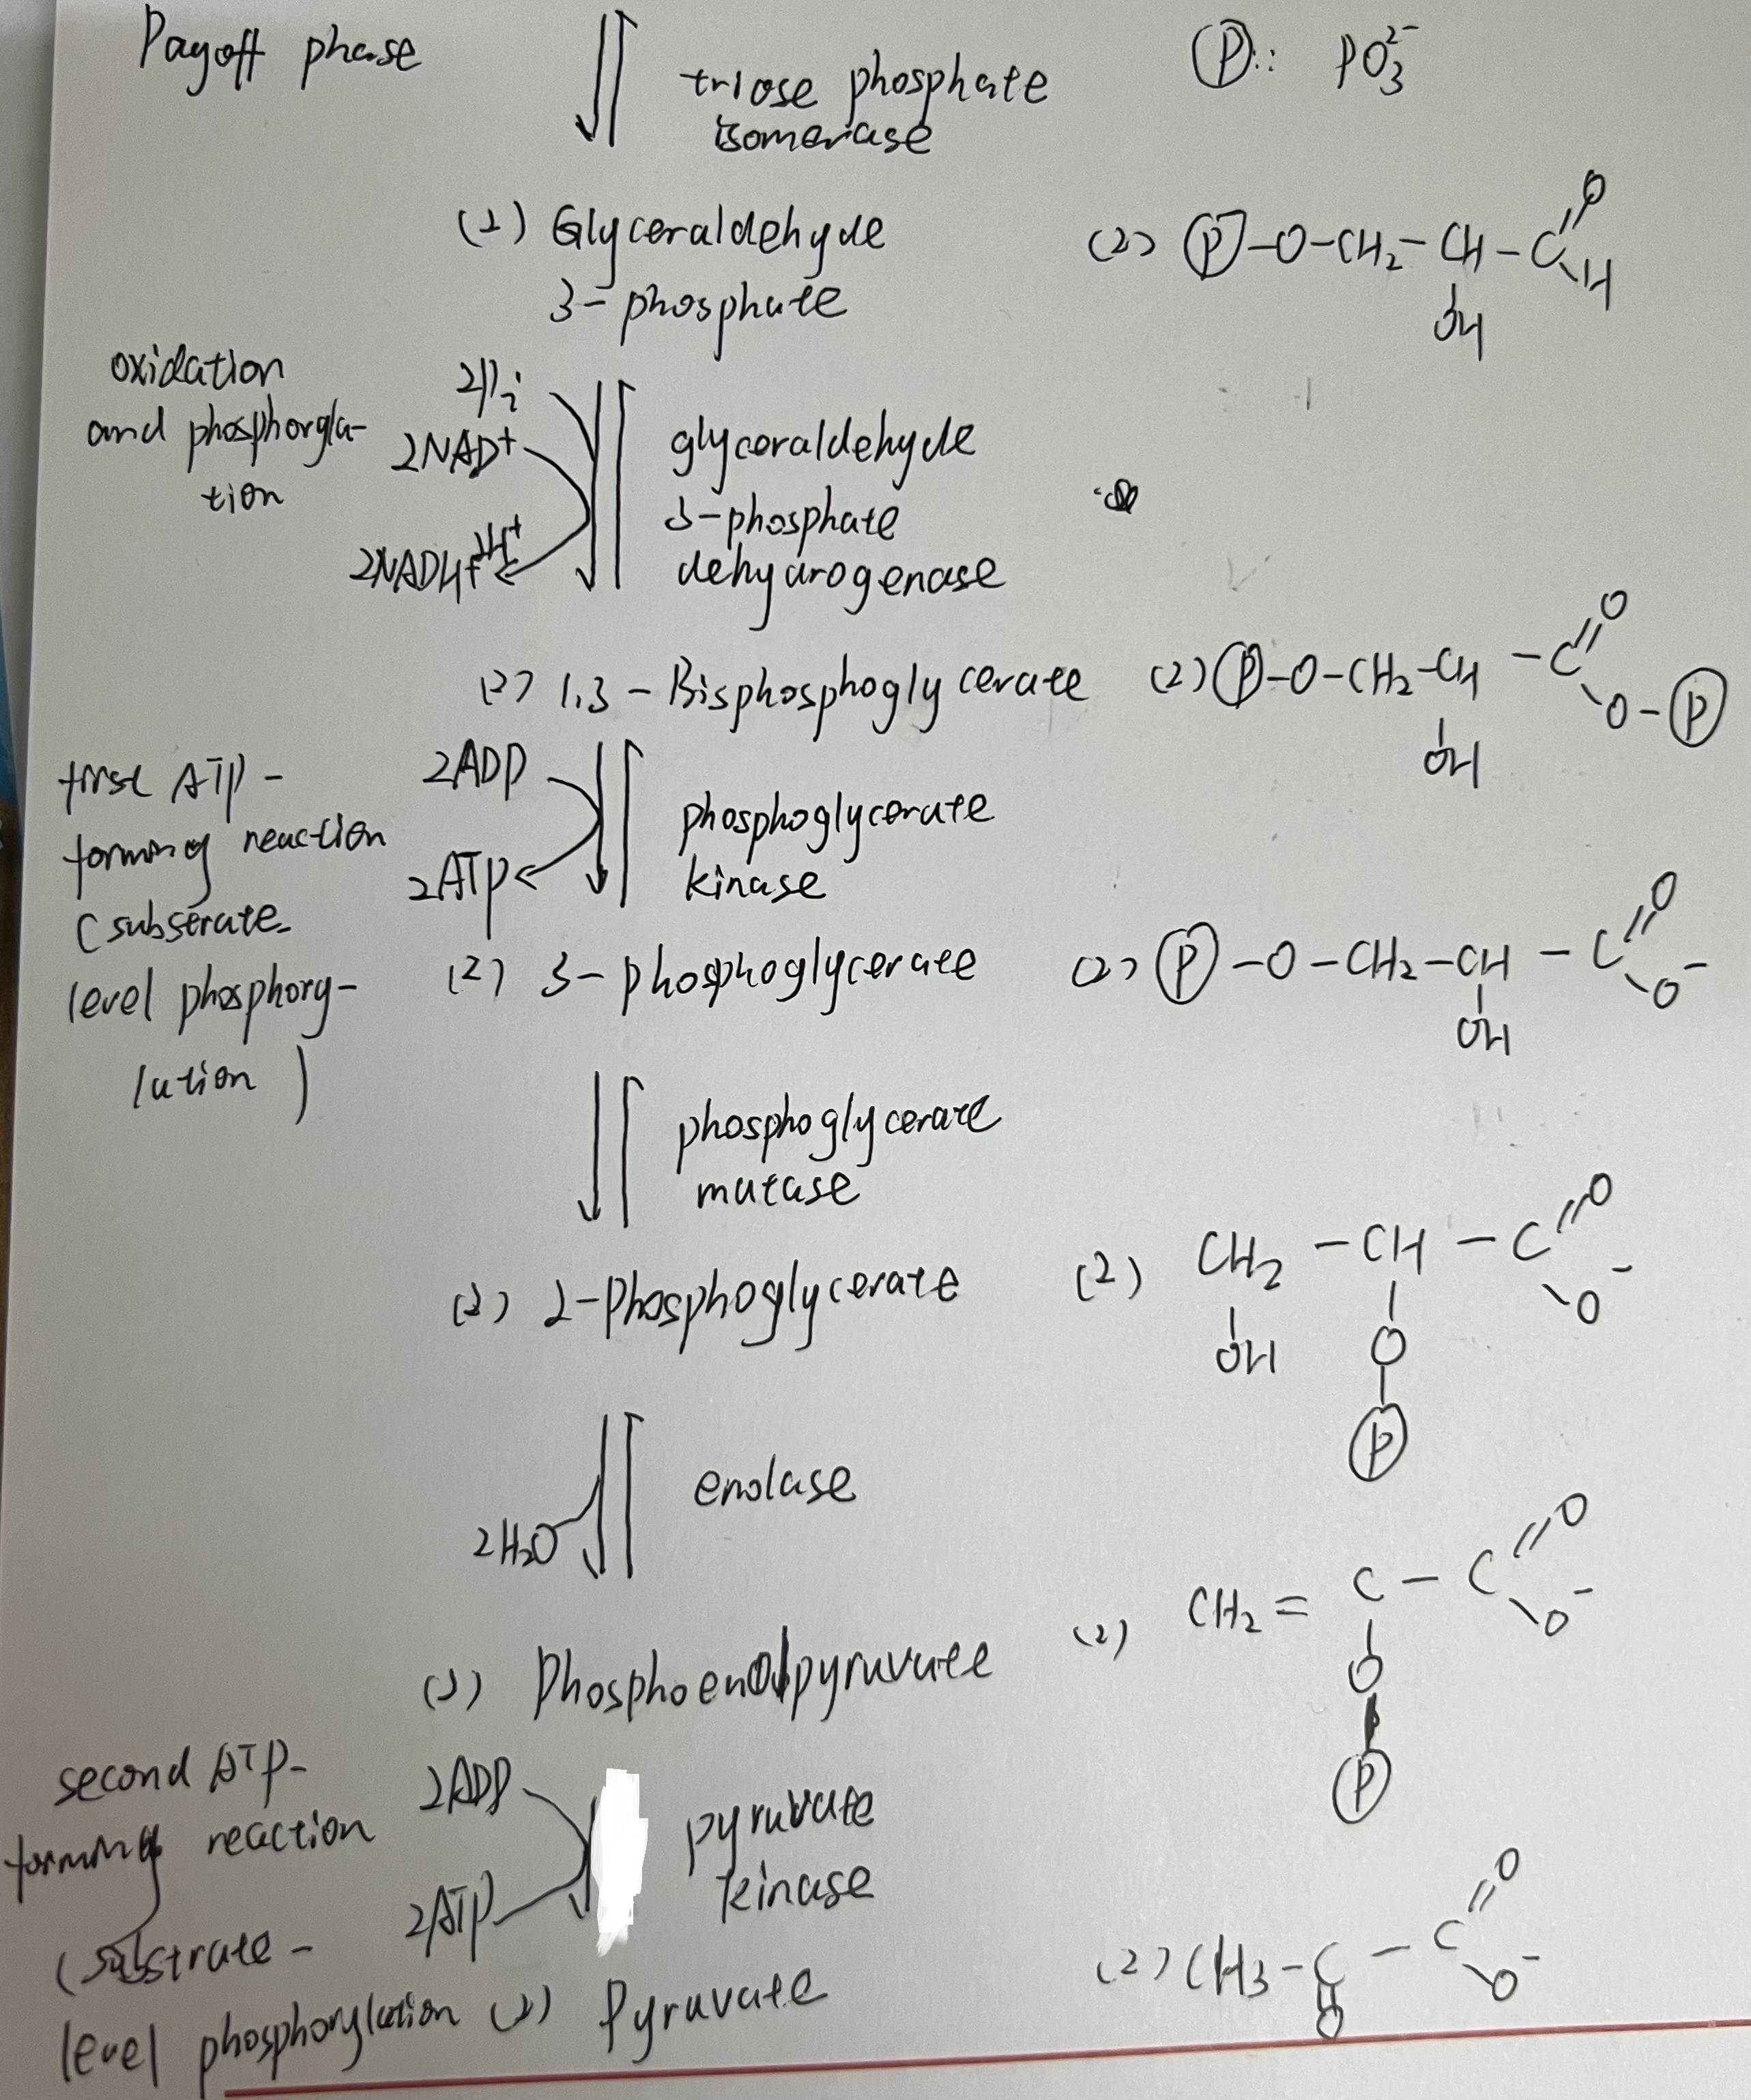 Payoff phase
triose phosphate
isomerase
Ⓟ:: PO₃²⁻
(2) Glyceraldehyde
3-phosphate
(2) Ⓟ-O-CH₂-CH-C
O
H
OH
oxidation
and phosphoryla-
tion
2Pi
2NAD+
2NADH+2H+
glyceraldehyde
3-phosphate
dehydrogenase
(2) 1,3-Bisphosphoglycerate
(2) Ⓟ-O-CH₂-CH-C
O
O-Ⓟ
OH
first ATP-
forming reaction
(substrate-
level phosphory-
lation)
2ADP
2ATP
phosphoglycerate
kinase
(2) 3-phosphoglycerate
(2) Ⓟ-O-CH₂-CH-C
O
O⁻
OH
phosphoglycerate
mutase
(2) 2-Phosphoglycerate
(2) CH₂-CH-C
O
O⁻
OH
O
Ⓟ
enolase
2H₂O
(2) Phosphoenolpyruvate
(2) CH₂=C-C
O
O⁻
O
Ⓟ
second ATP-
forming reaction
(substrate-
level phosphorylation
2ADP
2ATP
pyruvate
kinase
(2) Pyruvate
(2) CH3-C-C
O
O⁻
O